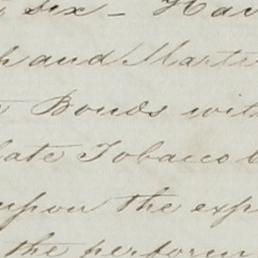 six - Hav
and Marti
Bonds with
ate Tobacco
upon the exp
the perform